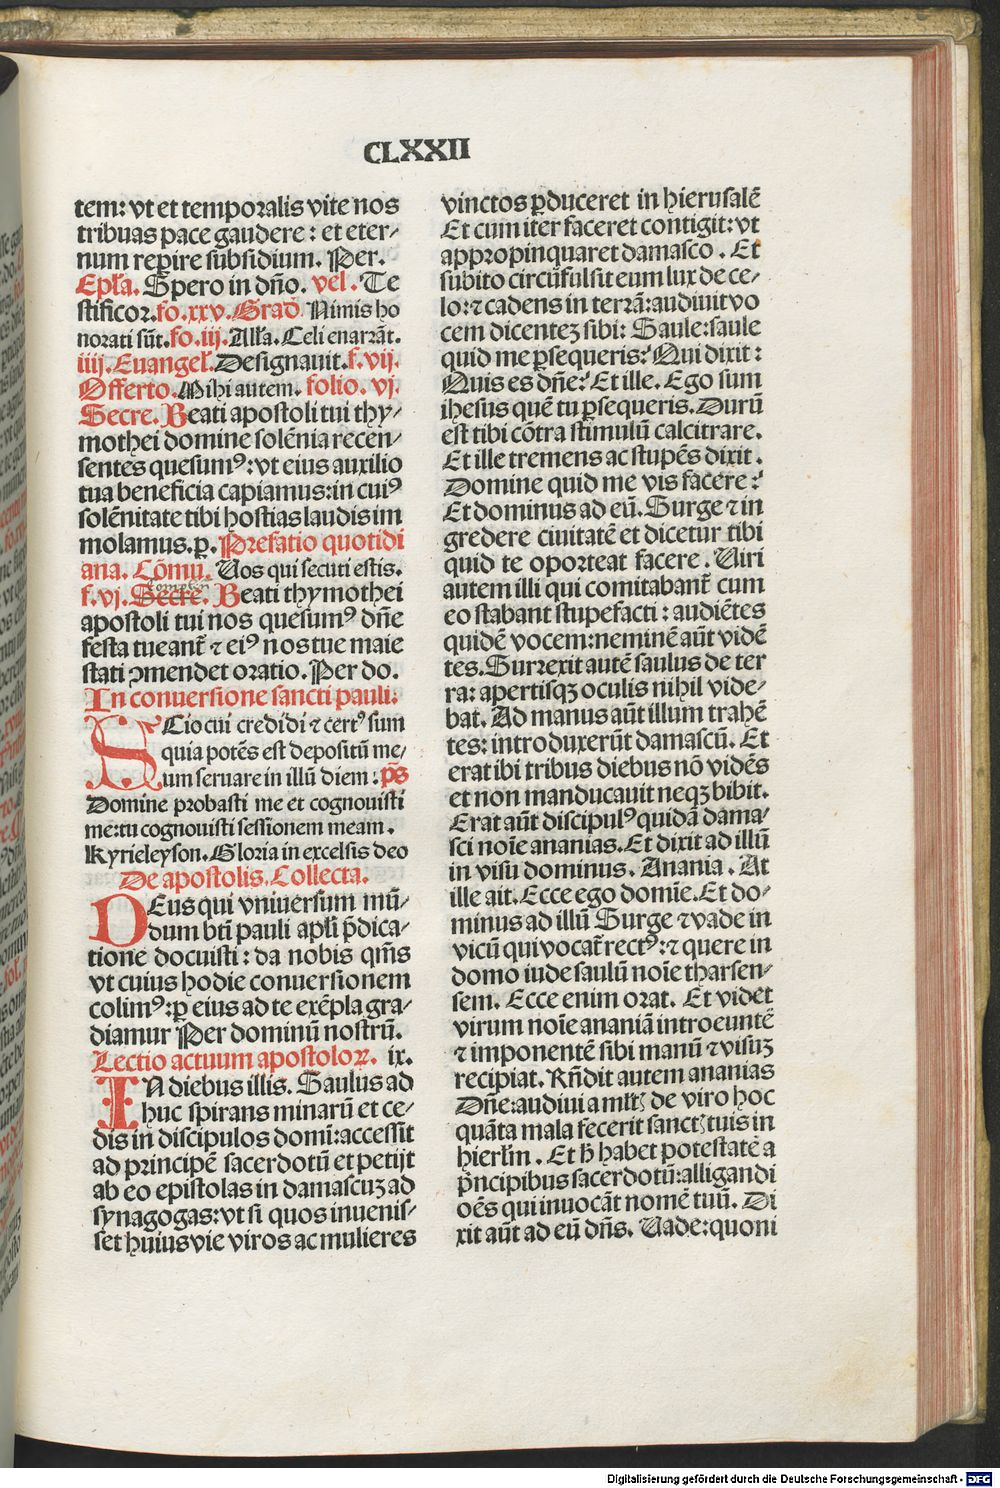 CLXXII
tem: vt et temporalis vite nos
tribuas pace gaudere: et eter⸗
num reꝑire subsidium. Per.
Epl̃a. Spero in dño. vel. Te
stificor. fo. xxv. Grad̃ Nimis ho
norati sũt. fo. iij. All̃a. Celi enarrãt.
iiij. Euangel̃. Designauit. f. vij.
Offerto. Mihi autem. folio. vj
Secre. Beati apostoli tui thy⸗
mothei domine solẽnia recen⸗
sentes quesumꝰ: vt eius auxilio
tua beneficia capiamus: in cuiꝰ
solẽnitate tibi hostias laudis im
molamus. ꝑ. Prefatio quotidi
ana. Cõmũ. Vos qui secuti estis.
f. vj. Secre. Beati thymothei
apostoli tui nos quesumꝰ dñe
festa tueant̃ ⁊ eiꝰ nos tue maie
stati ꝯmendet oratio. Per do.
In conuersione sancti pauli.
SCio cui credidi ⁊ certꝰ sum
quia potẽs est depositũ me⸗
um seruare in illũ diem. p̃s
Domine probasti me et cognouisti
me: tu cognouisti sessionem meam.
Kyrieleyson. Gloria in excelsis deo
De apostolis. Collecta.
DEus qui vniuersum mũ⸗
dum btĩ pauli apl̃i p̃dica⸗
tione docuisti: da nobis qm̃s
vt cuius hodie conuersionem
colimꝰ: ꝑ eius ad te exẽpla gra⸗
diamur Per dominũ nostrũ.
Lectio actuum apostoloꝝ. ix.
IN diebus illis. Saulus ad
huc spirans minarũ et ce⸗
dis in discipulos domĩ: accessit
ad principẽ sacerdotũ et petijt
ab eo epistolas in damascuꝫ ad
synagogas: vt si quos inuenis⸗
set huius vie viros ac mulieres
vinctos ꝑduceret in hierusalẽ
Et cum iter faceret contigit: vt
appropinquaret damasco. Et
subito circũfulsit eum lux de ce⸗
lo: ⁊ cadens in terrã: audiuit vo
cem dicenteꝫ sibi: Saule: saule
quid me ꝑsequeris? Qui dixit:
Quis es dñe? Et ille. Ego sum
ihesus quẽ tu ꝑsequeris. Durũ
est tibi cõtra stimulũ calcitrare.
Et ille tremens ac stupẽs dixit.
Domine quid me vis facere?
Et dominus ad eũ. Surge ⁊ in
gredere ciuitatẽ et dicetur tibi
quid te oporteat facere. Viri
autem illi qui comitabant̃ cum
eo stabant stupefacti: audiẽtes
quidẽ vocem: neminẽ aũt vidẽ
tes. Surrexit autẽ saulus de ter
ra: apertisqꝫ oculis nihil vide⸗
bat. Ad manus aũt illum trahẽ
tes: introduxerũt damascũ. Et
erat ibi tribus diebus nõ vidẽs
et non manducauit neqꝫ bibit.
Erat aũt discipulꝰ quidã dama⸗
sci noĩe ananias. Et dixit ad illũ
in visu dominus. Anania. At
ille ait. Ecce ego domĩe. Et do⸗
minus ad illũ Surge ⁊ vade in
vicũ qui vocat̃ rectꝰ: ⁊ quere in
domo iude saulũ noĩe tharsen⸗
sem. Ecce enim orat. Et videt
virum noĩe ananiã introeuntẽ
⁊ imponentẽ sibi manũ ⁊ visuꝫ
recipiat. Rñdit autem ananias
Dñe: audiui a mlt̃ꝭ de viro hoc
quãta mala fecerit sanctꝭ tuis in
hierl̃m. Et h̃ habet potestatẽ a
p̃ncipibus sacerdotũ: alligandi
oẽs qui inuocãt nomẽ tuũ. Di
xit aũt ad eũ dñs. Vade: quoni
Digitalisierung gefördert durch die Deutsche Forschungsgemeinschaft - DFG